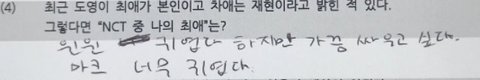 (4) 최근 도영이 최애가 본인이고 차애는 재현이라고 밝힌 적 있다.
그렇다면 “NCT 중 나의 최애”는?
윈윈 귀엽다 하지만 가끔 싸우고 싶다.
마크 너무 귀엽다.